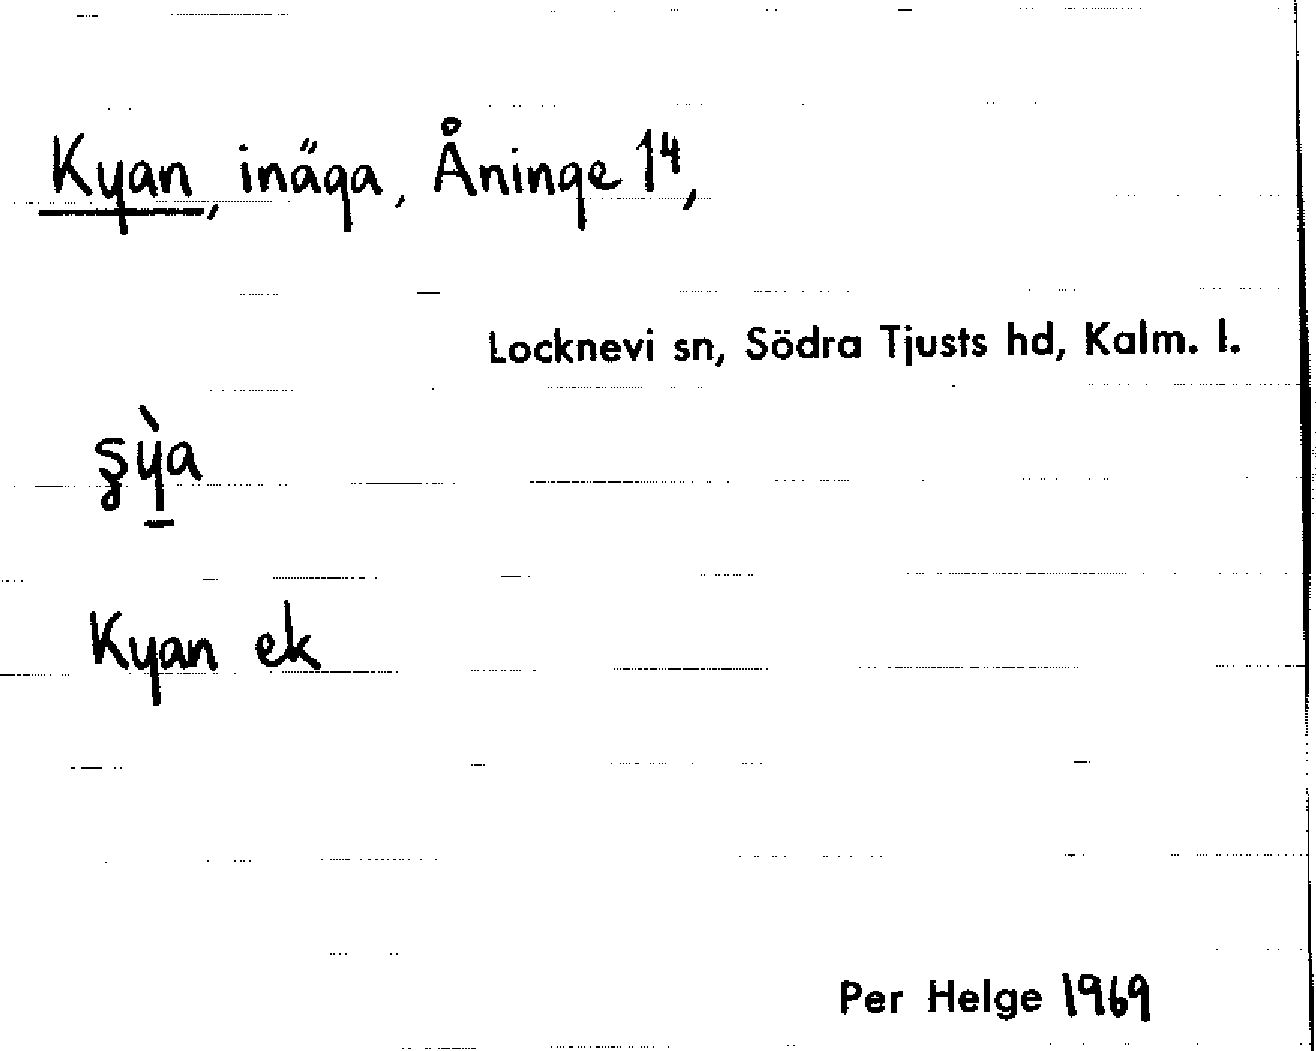 Kyan, inäga, Åninge 1⁴,
Locknevi sn, Södra Tjusts hd, Kalm. l.
ʂỳ̠a
Kyan ek
Per Helge 1969